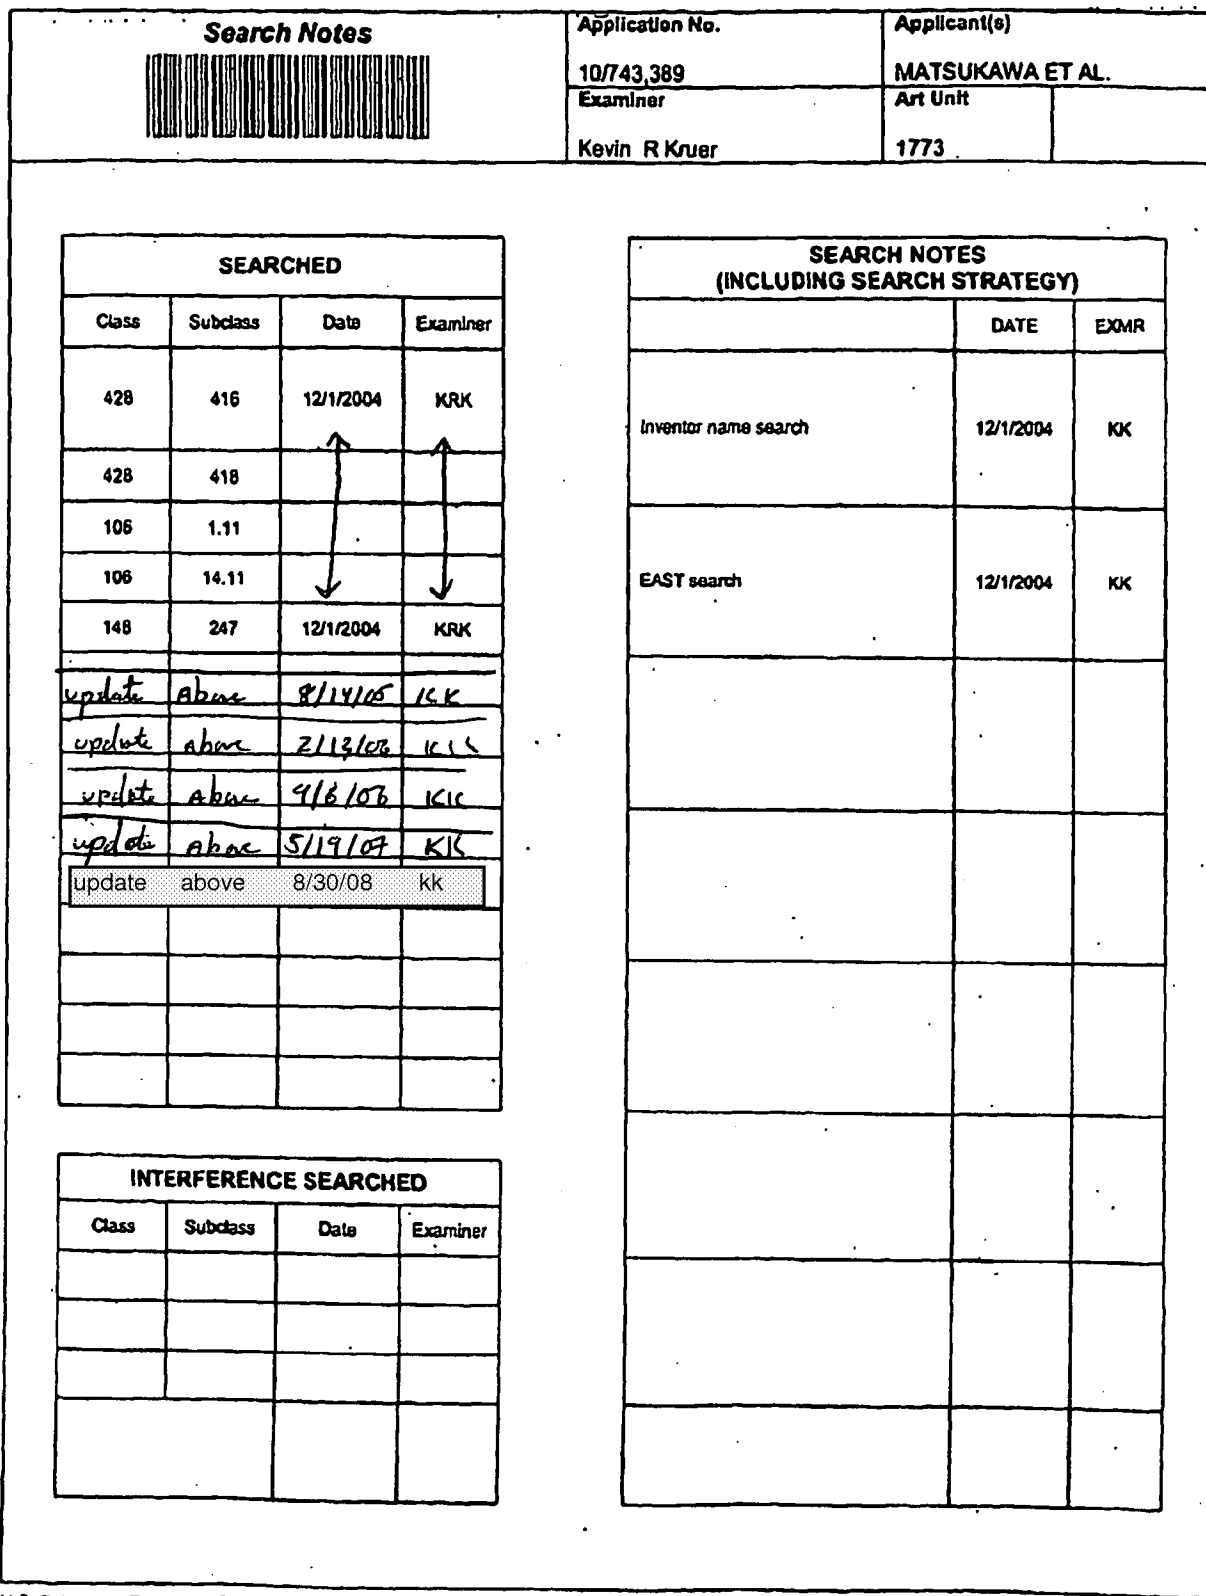 Search Notes
Application No.
10/743,389
Applicant(s)
MATSUKAWA ET AL.
Examiner
Kevin R Kruer
Art Unit
1773
SEARCHED
Class Subclass Date Examiner
428 416 12/1/2004 KRK
428 418
106 1.11
106 14.11
148 247 12/1/2004 KRK
update Above 8/14/05 KK
update Above 2/13/06 KK
update Above 9/6/06 KK
update Above 5/19/07 KK
update above 8/30/08 kk
INTERFERENCE SEARCHED
Class Subclass Date Examiner
SEARCH NOTES
(INCLUDING SEARCH STRATEGY)
DATE EXMR
Inventor name search 12/1/2004 KK
EAST search 12/1/2004 KK